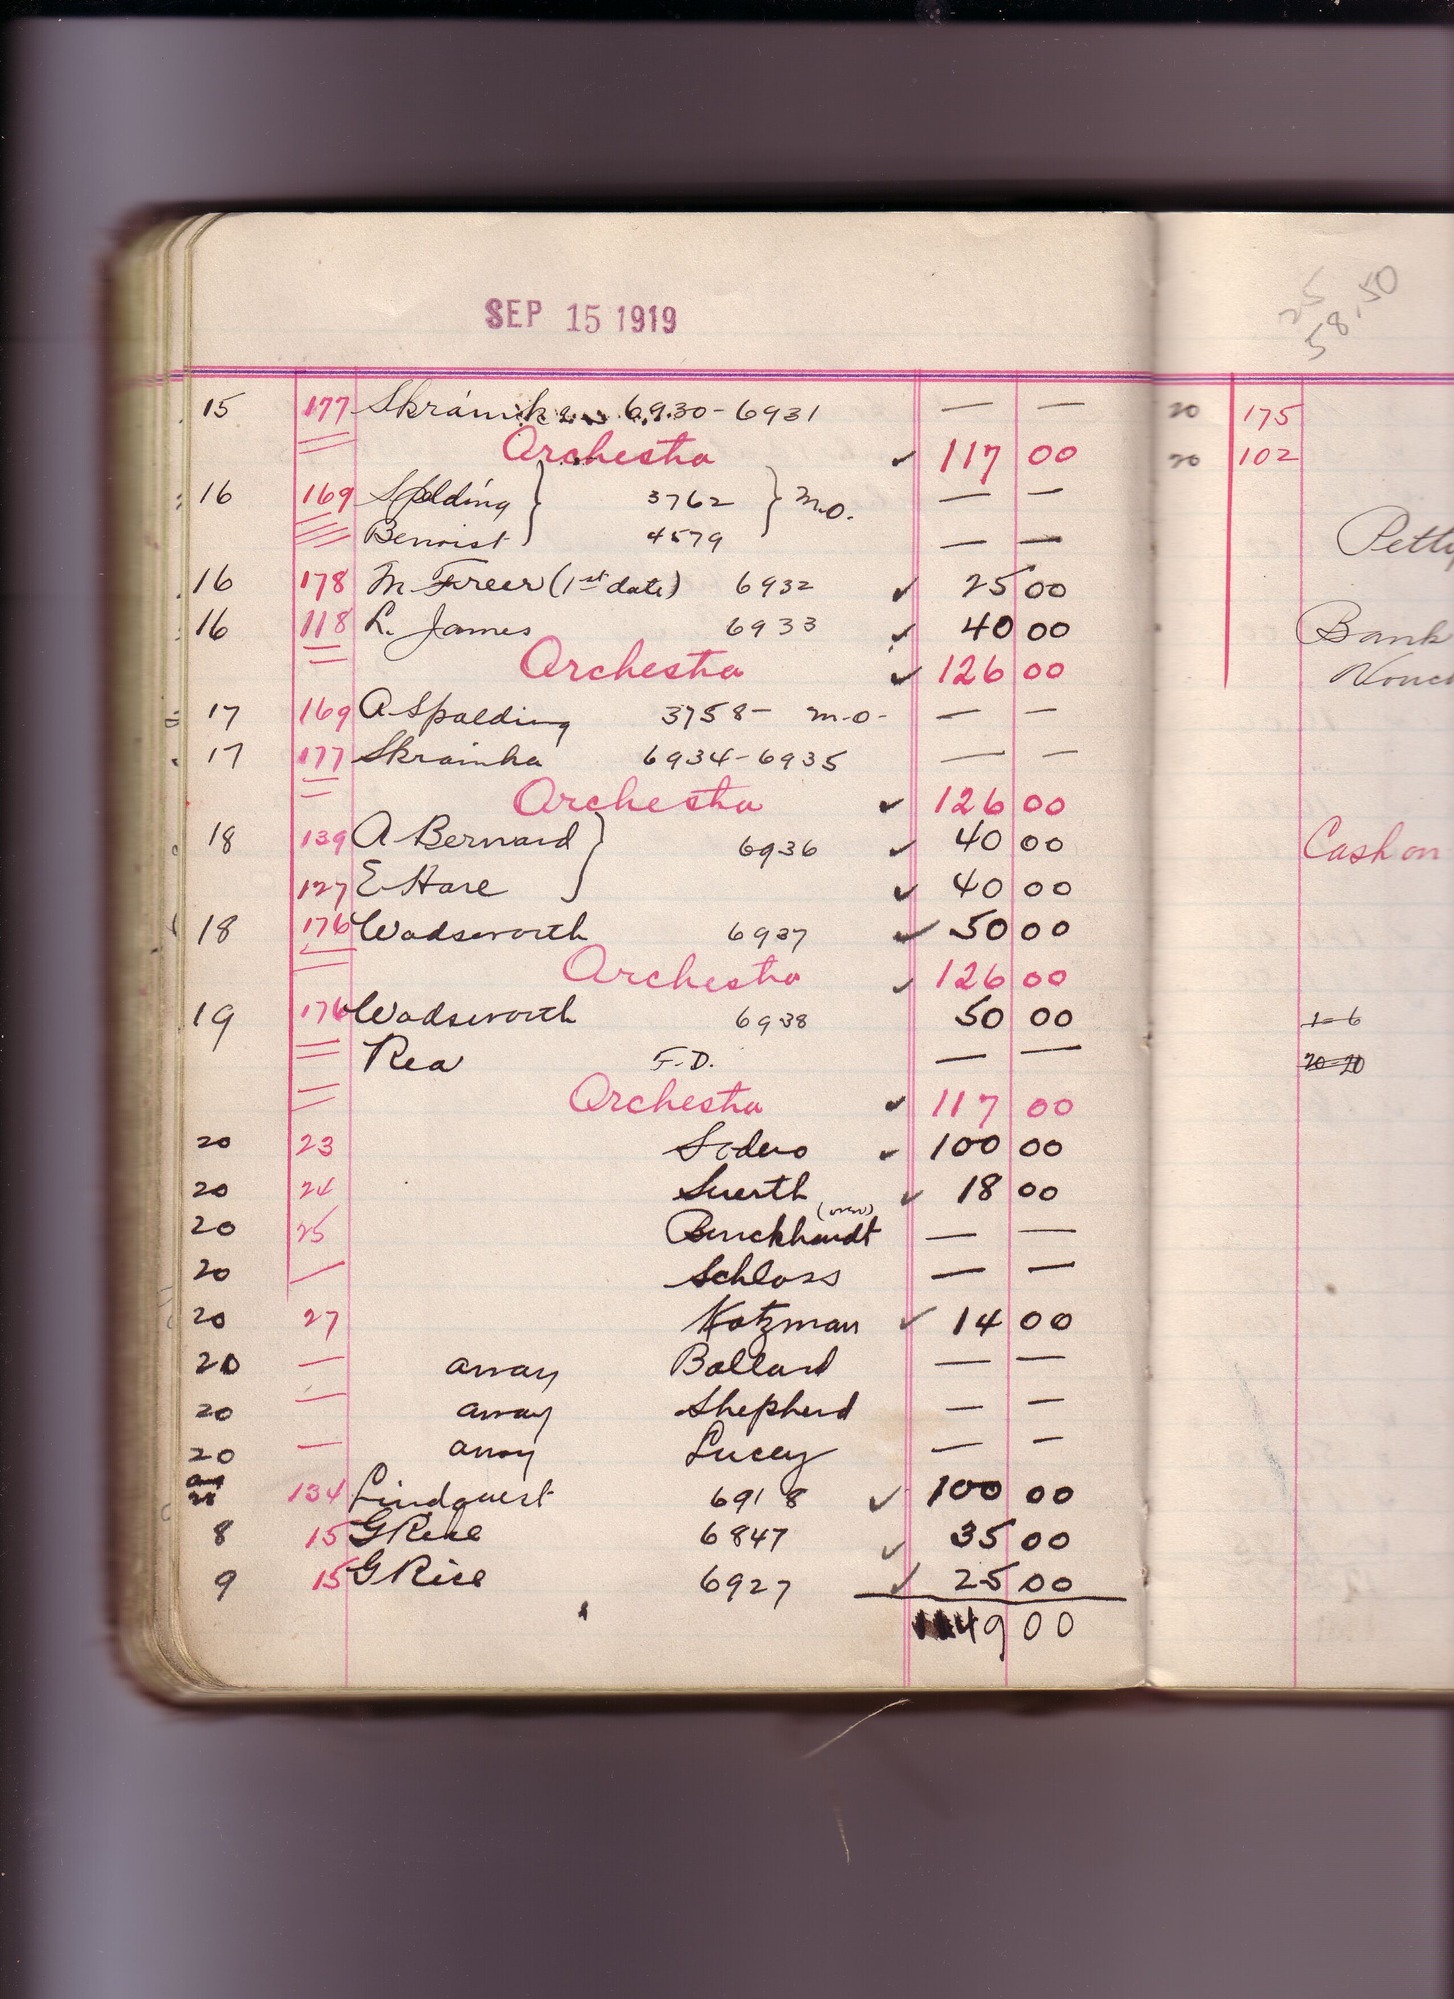 SEP 15 1919
15 177 Skrainka 6930-6931 — —
Orchestra ✓ 117 00
16 169 Spalding } 3762 } M.O. — —
Benoist } 4579 — —
16 178 M Freer (1st date) 6932 ✓ 25 00
16 118 L. James 6933 ✓ 40 00
Orchestra ✓ 126 00
17 169 A Spalding 3758- M-O- — —
17 177 Skrainka 6934-6935 — —
Orchestra ✓ 126 00
18 139 A Bernard } 6936 ✓ 40 00
127 E Hare ✓ 40 00
18 176 Wadsworth 6937 ✓ 50 00
Orchestra ✓ 126 00
19 176 Wadsworth 6938 50 00
Rea F.D. — —
Orchestra ✓ 117 00
20 23 Sodero ✓ 100 00
20 24 Suerth ✓ 18 00
20 25 Burckhardt — —
20 — Schloss — —
20 27 Katzman ✓ 14 00
20 — away Ballard — —
20 — away Shepherd — —
20 — away Lucey — —
134 Lindquest 6918 ✓ 100 00
8 15 G Rice 6847 ✓ 35 00
9 15 G Rice 6927 ✓ 25 00
1149 00
25
58.50
20 175
20 102
Petty
Bank
Vouch
Cash on
1-6
20-20